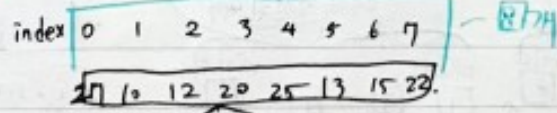 index 0 1 2 3 4 5 6 7 - 8개
27 10 12 20 25 13 15 22.